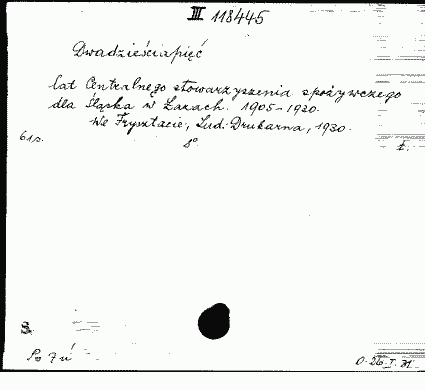 III 118445
Dwadzieściapięć
lat Centralnego stowarzyszenia spożywczego
dla Śląska w Łazach. 1905-1930.
We Frysztacie, Lud. Drukarna, 1930.
61s.
8°
S.
D. 26. I. 31